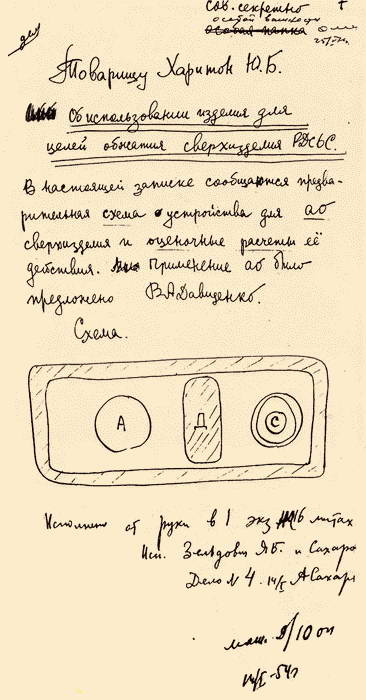 Сов. секретно
особой важности
Особая папка
Товарищу Харитон Ю.Б.
Об использовании изделия для
целей обжатия сверхизделия РДС6С.
В настоящей записке сообщаются предва-
рительная схема устройства для АО
сверхизделия и оценочные расчеты её
действия. Применение АО было
предложено В.А.Давиденко.
Схема.
А
Д
С
Исполнено от руки в 1 экз на 6 листах
Исп. Зельдович Я.Б. и Сахаро
Дело N 4. 14/I А Сахар
14/I-54г